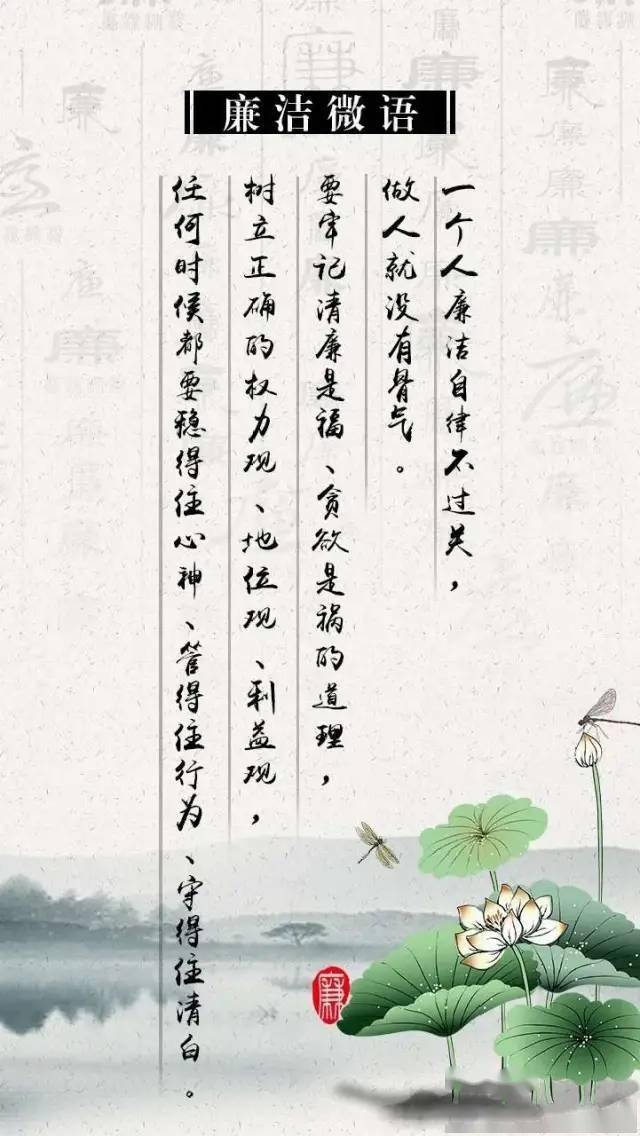 廉洁微语
一个人廉洁自律不过关，
做人就没有骨气。
要牢记清廉是福、贪欲是祸的道理，
树立正确的权力观、地位观、利益观，
任何时候都要稳得住心神、管得住行为、守得住清白。
廉